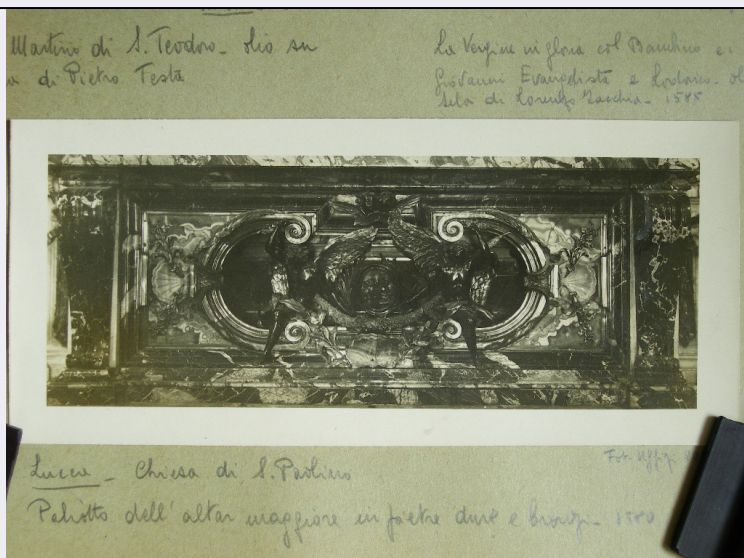 Martino di S. Teodoro - olio su
di Pietro Testa
La Vergine in gloria col Bambino e i
Giovanni Evangelista e Lodovico - ol
tela di Lorenzo Zacchia - 1585
Lucca - Chiesa di S. Paolino
Fot. Uffizi
Paliotto dell'altar maggiore in pietre dure e bronzi - 1580